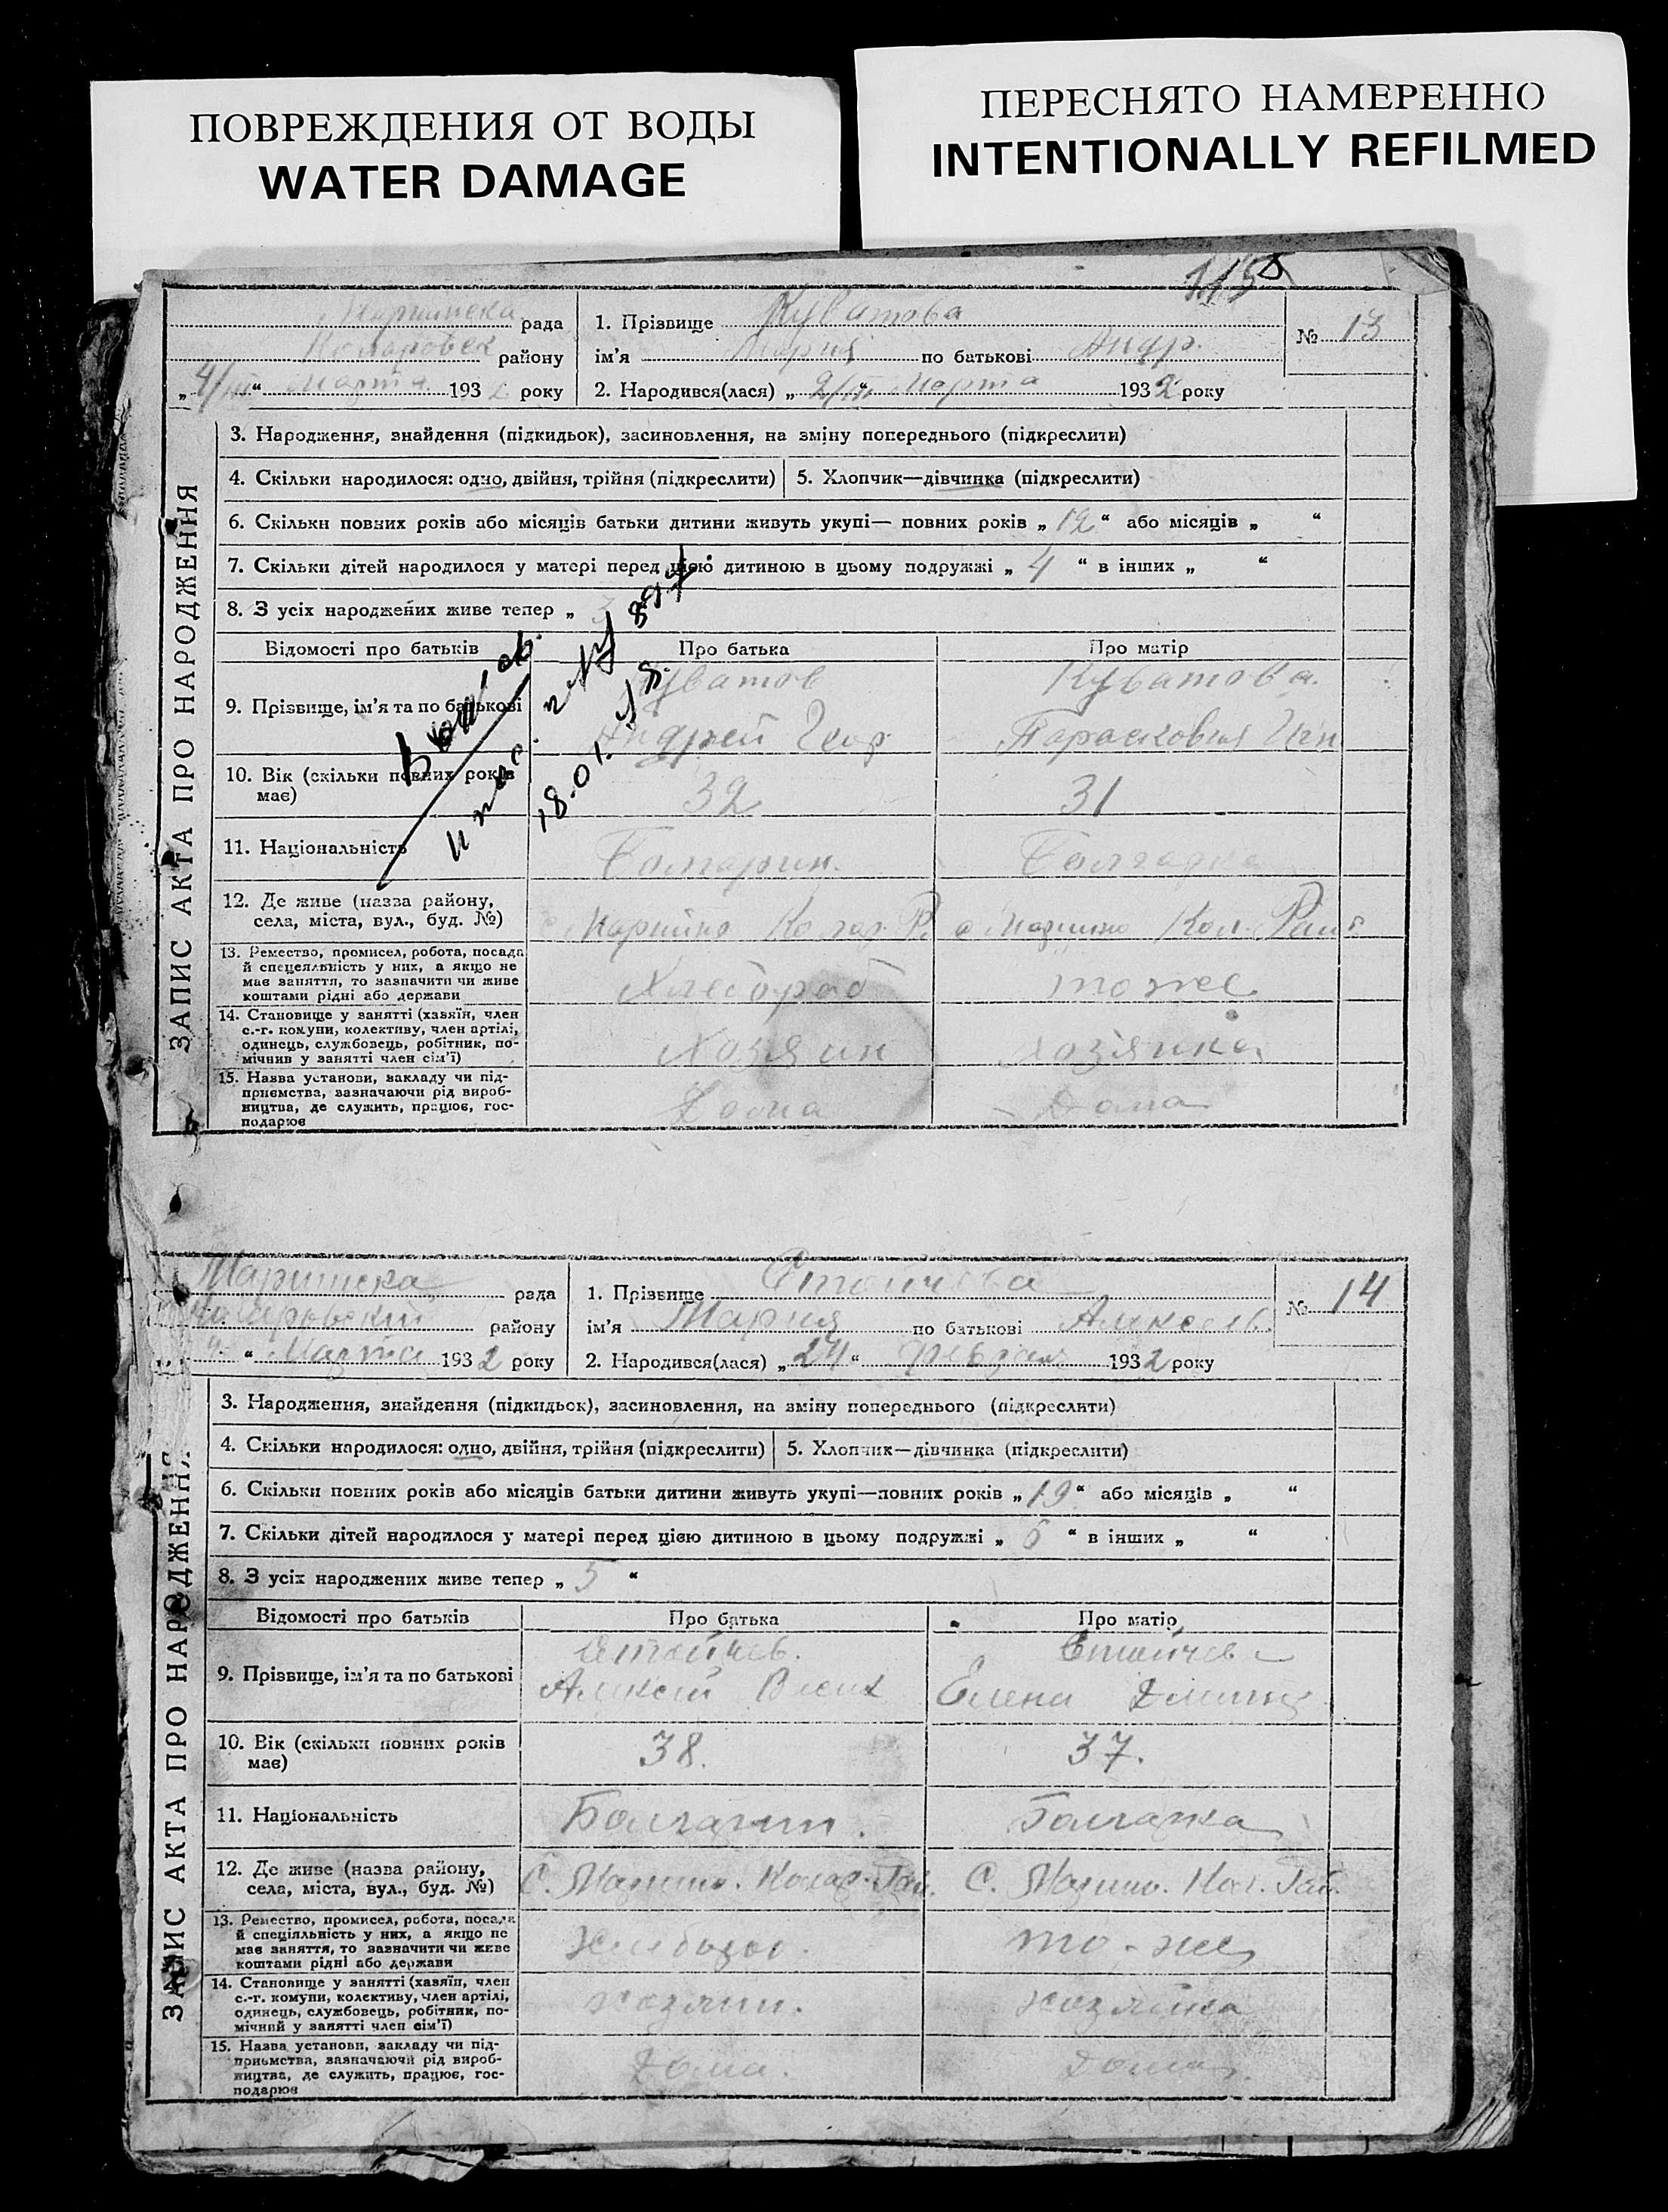 ПОВРЕЖДЕНИЯ ОТ ВОДЫ
WATER DAMAGE
ПЕРЕСНЯТО НАМЕРЕННО
INTENTIONALLY REFILMED
115
рада
Коларовск району
„4/III“ Марта 1932 року
1. Прізвище Куватова
ім'я Мария по батькові Андр.
2. Народився(лася) „2/III“ Марта 1932 року
№ 13
ЗАПИС АКТА ПРО НАРОДЖЕННЯ
3. Народження, знайдення (підкидьок), засиновлення, на зміну попереднього (підкреслити)
4. Скільки народилося: одно, двійня, трійня (підкреслити) 5. Хлопчик—дівчинка (підкреслити)
6. Скільки повних років або місяців батьки дитини живуть укупі— повних років „ 12 “ або місяців „ “
7. Скільки дітей народилося у матері перед цією дитиною в цьому подружжі „ 4 “ в інших „ “
8. З усіх народжених живе тепер „ 3
Відомості про батьків Про батька Про матір
9. Прізвище, ім'я та по батькові
Куватов
Андрей Геор
Куватова.
Парасковия
10. Вік (скільки повних років
має)
32
31
11. Національність
Болгарин.
Болгарка
12. Де живе (назва району,
села, міста, вул., буд. №)
с Марьино Колар. Р.
с Марьино Кол. Рай
13. Ремество, промисел, робота, посада
й спецеяльність у них, а якщо не
має заняття, то зазначити чи живе
коштами рідні або держави
Хлебороб
тоже
14. Становище у занятті (хазяїн, член
с.-г. комуни, колективу, член артілі,
одинець, службовець, робітник, по-
мічнив у занятті член сім'ї)
Хозяин
Хозяйка
15. Назва установи, закладу чи під-
приємства, зазначаючи рід вироб-
ництва, де служить, працює, гос-
подарює
Дома
Дома
18.01.
рада
району
„ “ Марта 1932 року
1. Прізвище Стойчева
ім'я Мария по батькові Алексеев.
2. Народився(лася) „24“ Феврал 1932 року
№ 14
ЗАПИС АКТА ПРО НАРОДЖЕННЯ
3. Народження, знайдення (підкидьок), засиновлення, на зміну попереднього (підкреслити)
4. Скільки народилося: одно, двійня, трійня (підкреслити) 5. Хлопчик—дівчинка (підкреслити)
6. Скільки повних років або місяців батьки дитини живуть укупі—повних років „ 19 “ або місяців „ “
7. Скільки дітей народилося у матері перед цією дитиною в цьому подружжі „ 6 “ в інших „ “
8. З усіх народжених живе тепер „ 5 “
Відомості про батьків Про батька Про матір
9. Прізвище, ім'я та по батькові
Стойчев.
Алексей
Стойчева
Елена
10. Вік (скільки повних років
має)
38.
37.
11. Національність
Болгарин.
Болгарка
12. Де живе (назва району,
села, міста, вул., буд. №)
С. Марино. Колар. Рай.
С. Марино. Кол. Рай.
13. Ремество, промисел, робота, посада
й спеціяльність у них, а якщо не
має заняття, то зазначити чи живе
коштами рідні або держави
Хлебороб.
то-же
14. Становище у занятті (хазяїн, член
с.-г. комуни, колективу, член артілі,
одинець, службовець, робітник, по-
мічний у занятті член сім'ї)
хозяин.
хозяйка
15. Назва установи, закладу чи під-
приємства, зазначаючи рід вироб-
ництва, де служить, працює, гос-
подарює
Дома.
Дома.